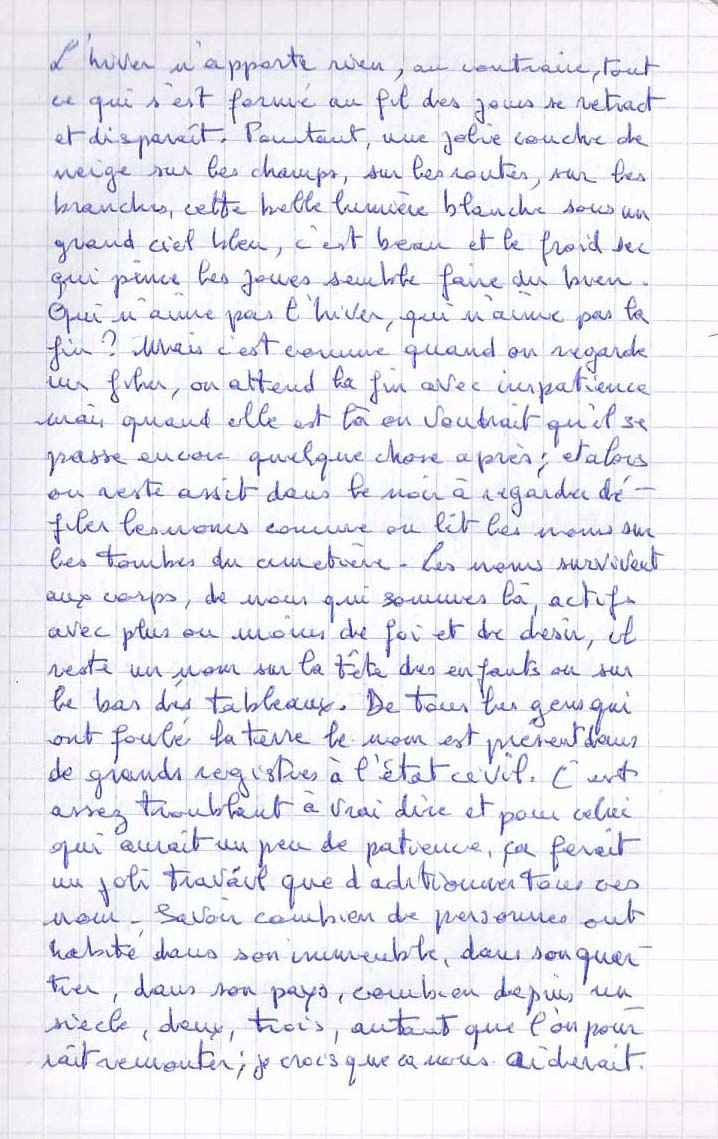 L'hiver n'apporte rien, au contraire, tout
ce qui s'est formé au fil des jours se retract
et disparaît. Pourtant, une jolie couche de
neige sur les champs, sur les routes, sur les
branches, cette belle lumière blanche sous un
grand ciel bleu, c'est beau et le froid sec
qui pince les joues semble faire du bien.
Qui n'aime pas l'hiver, qui n'aime pas la
fin ? Mais c'est comme quand on regarde
un film, on attend la fin avec impatience
mais quand elle est là on voudrait qu'il se
passe encore quelque chose après ; et alors
on reste assit dans le noir à regarder dé-
filer les noms comme on lit les noms sur
les tombes du cimetière. Les noms survivent
aux corps, de nous qui sommes là, actifs
avec plus ou moins de foi et de desir, il
reste un nom sur la tête des enfants ou sur
le bas des tableaux. De tous les gens qui
ont foulé la terre le nom est présent dans
de grands registres à l'état civil. C'est
assez troublant à vrai dire et pour celui
qui aurait un peu de patience, ça ferait
un joli travail que d'additionner tous ces
nom. Savoir combien de personnes ont
habité dans son immeuble, dans son quar-
tier, dans son pays, combien depuis un
siècle, deux, trois, autant que l'on pour-
rait remonter ; je crois que ca nous aiderait.